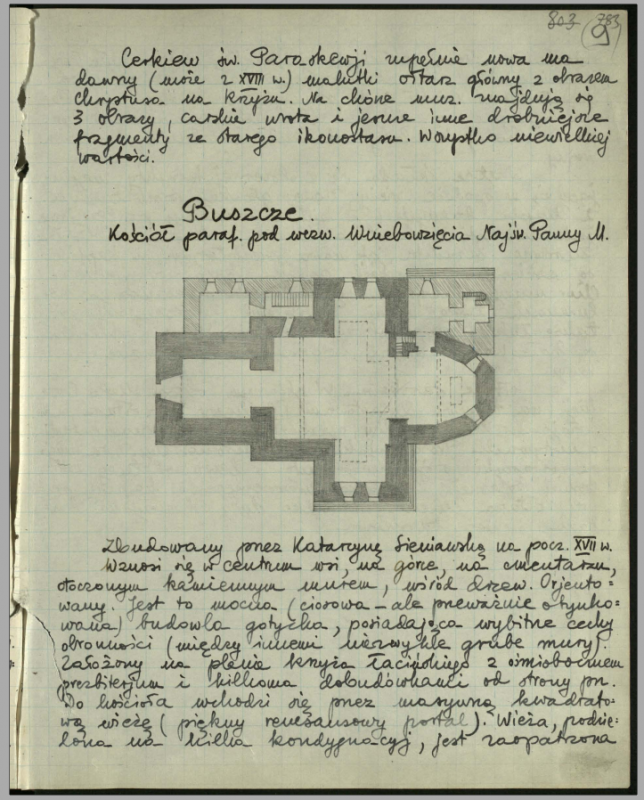 803 783
9
Cerkiew św. Paraskewji zupełnie nowa ma
dawny (może z XVIII w.) malutki ołtarz główny z obrazem
Chrystusa na krzyżu. Na chórze muz. znajdują się
3 obrazy, carskie wrota i jeszcze inne drobniejsze
fragmenty ze starego ikonostasu. Wszystko niewielkiej
wartości.
Buszcze.
Kościół paraf. pod wezw. Wniebowzięcia Najśw. Panny M.
Zbudowany przez Katarzynę Sieniawską na pocz. XVII w.
Wznosi się w centrum wsi, na górze, na cmentarzu,
otoczonym kamiennym murem, wśród drzew. Orjento-
wany. Jest to mocna (ciosowa - ale przeważnie otynko-
wana) budowla gotycka, posiadająca wybitne cechy
obronności (między innemi niezwykle grube mury).
Założony na planie krzyża łacińskiego z ośmiobocznem
prezbiterjum i kilkoma dobudówkami od strony pn.
Do kościoła wchodzi się przez masywną kwadrato-
wą wieżę (piękny renesansowy portal). Wieża, podzie-
lona na kilka kondygnacyj, jest zaopatrzona